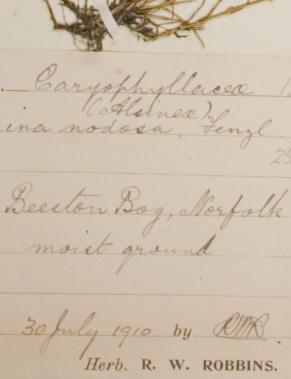 Caryophyllaceæ
(Alsineæ)
ina nodosa, Fenzl
25
Beeston Bog, Norfolk
moist ground
30 July 1910 by RWR.
Herb. R. W. ROBBINS.